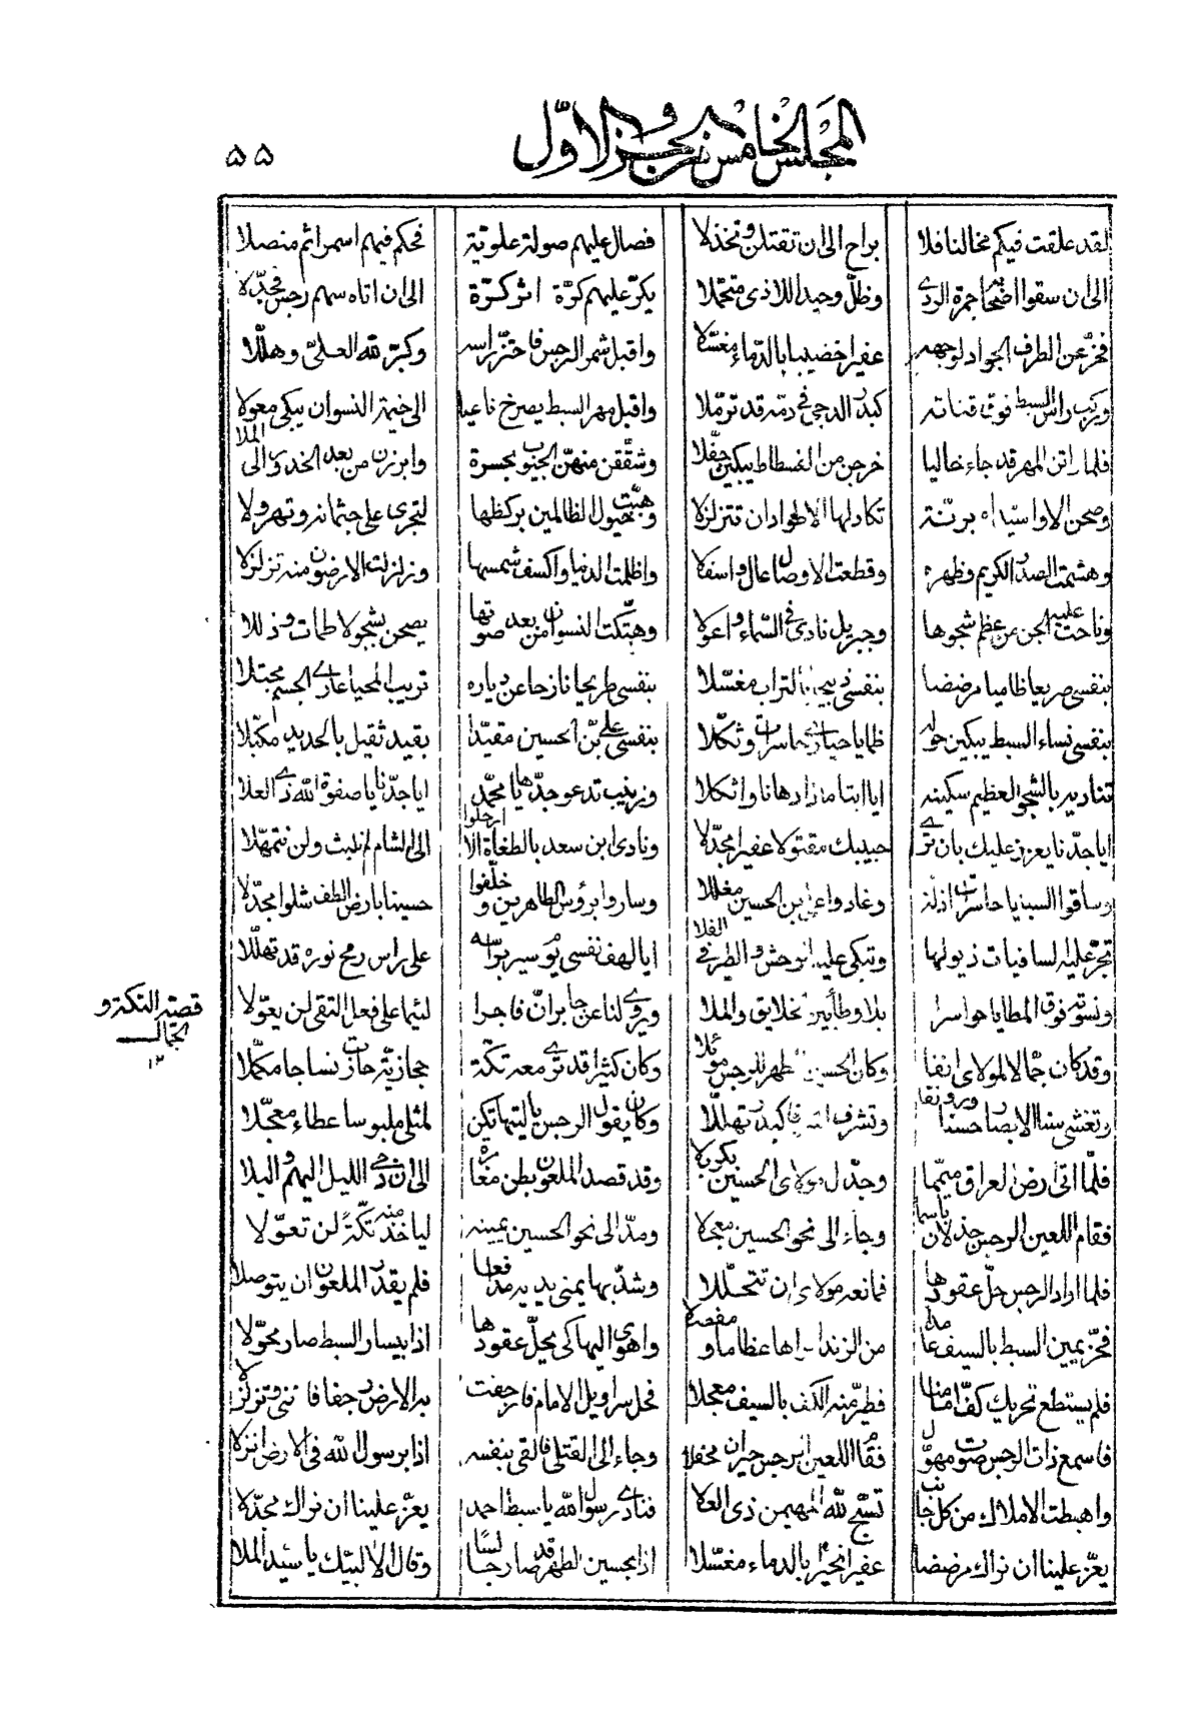 المجلس الخامس من الجزو الاول
٥٥
لقد علقت فيكم مخالبنا فلا براح الى ان تقتلن وتخذلا فصال عليهم صولة علوية فحكم فيهم اسمرا ثم منصلا
الى ان سقوا اضحابه جمرة الردى وظل وحيدا للاذى متحملا يكر عليهم كرة اثر كرة الى ان اتاه سهم رجس فجدلا
فخر عن الطرف الجواد لوجهه عفيرا خضيبا بالدماء مغسلا واقبل شمر الرجس فاحتز راسه وكبر لله العلي وهللا
وركب راس السبط فوق قناته كبدر الدجى في دمه قد ترملا واقبل مهر السبط يصرخ ناعيا الى خيمة النسوان يبكي معولا
فلما راتن المهر قد جاء خاليا خرجن من الفسطاط يبكين حفلا وشققن منهن الجيوب بحسرة وابرزن من بعد الخدور الى الملا
وصحن الا واسيداه برنة تكاد لها الاطواد ان تتزلزلا وهبت خيول الظالمين بركظها لتجرى على جثمانه وتهرولا
وهشمت الصدر الكريم وظهره وقطعت الاوصال عال واسفلا واظلمت الدنيا واكسف شمسها وزلزلت الارضون منه تزلزلا
وناحت عليه الجن من عظم شجوها وجبريل نادى في السماء واعولا وهتكت النسوان من بعد صونها يصحن بشجو لاطمات وذللا
بنفسى صريعا ظاميا مرضضا بنفسى ذبيحا بالتراب مغسلا بنفسى طريحا نازحا عن دياره تريب المحيا عارى الجسم مجتلا
بنفسى نساء السبط يبكين حوله ظمايا حيارى حاسرات وثكلا بنفسى علي بن الحسين مقيدا بقيد ثقيل بالحديد مكبلا
تناديه بالشجو العظيم سكينه ايا ابتا ماذا دهانا واثكلا وزينب تدعو جدها يا محمد ايا جدنا يا صفوة الله ذى العلا
ايا جدنا يعزز عليك بان ترى حبيبك مقتولا عفيرا مجدلا ونادى ابن سعد بالطغاة الا ارحلوا الى الشام لم نلبث ولن نتمهلا
وساقوا السبايا حاسرات اذلة وغادوا علي بن الحسين مغللا وساروا برؤس الطاهرين وخلفوا حسينا بارض الطف شلوا مجدلا
تجر عليه السافيات ذيولها وتبكى عليه الوحش والطير في الفلا ايا لهف نفسى يوم سير براسه على راس رمح نوره قد تهللا
ونسوته فوق المطايا حواسرا بلا وطأ بين الخلايق والملا ويروى لنا عن جابر ان فاجرا لئيما على فعل التقى لن يعولا
قصة التكة والجمال ١٢
وقد كان جمالا لمولاى انفا وكان الحسين الطهر للرجس موئلا وكان كثيرا قد ترى معه تكة حجازية حازت نساجا مكملا
وتغشى سنا الابصار حسنا ورونقا وتشرف كبدر تهللا وكان يقول الرجس يا ليتها تكن لمثلى ملبوسا عطاء معجلا
فلما اتى ارض العراق ميمما وجدل مولاى الحسين بكربلا وقد قصد الملعون بطن مغارة الى ان دجى الليل البهيم والبلا
فقام اللعين الرجس جذلان باسما وجاء الى نحو الحسين معجلا ومد الى نحو الحسين يمينه لياخذ منه تكة لن تعولا
فلما اراد الرجس حل عقودها فمانعه مولاى ان تتحللا وشد بها يمنى يديه مدافعا فلم يقدر الملعون ان يتوصلا
فحز يمين السبط بالسيف عامدا من الزند عظاما ومفصلا واهوى اليها كى يحل عقودها اذا بيسار السبط صار محولا
فلم يستطع تحريك كفا مناما فطير منه الكف بالسيف معجلا فحل سراويل الامام فارجفت به الارض رجفا فانثنى وتزلزلا
فاسمع ذات الرجس صوت مهول فقام اللعين الرجس حيران مخفلا وجاء الى القتلى فالقى بنفسه اذا برسول الله في الارض انزلا
واهبطت الاملاك من كل جانب تسبح لله المهيمن ذى العلا فنادى رسول الله يا سبط احمد يعز علينا ان نراك مجدلا
يعز علينا ان نراك مرضضا عفيرا نحيرا بالدماء مغسلا اذا بحسين الطهر قد صار جالسا وقال الا لبيك يا سيد الملا